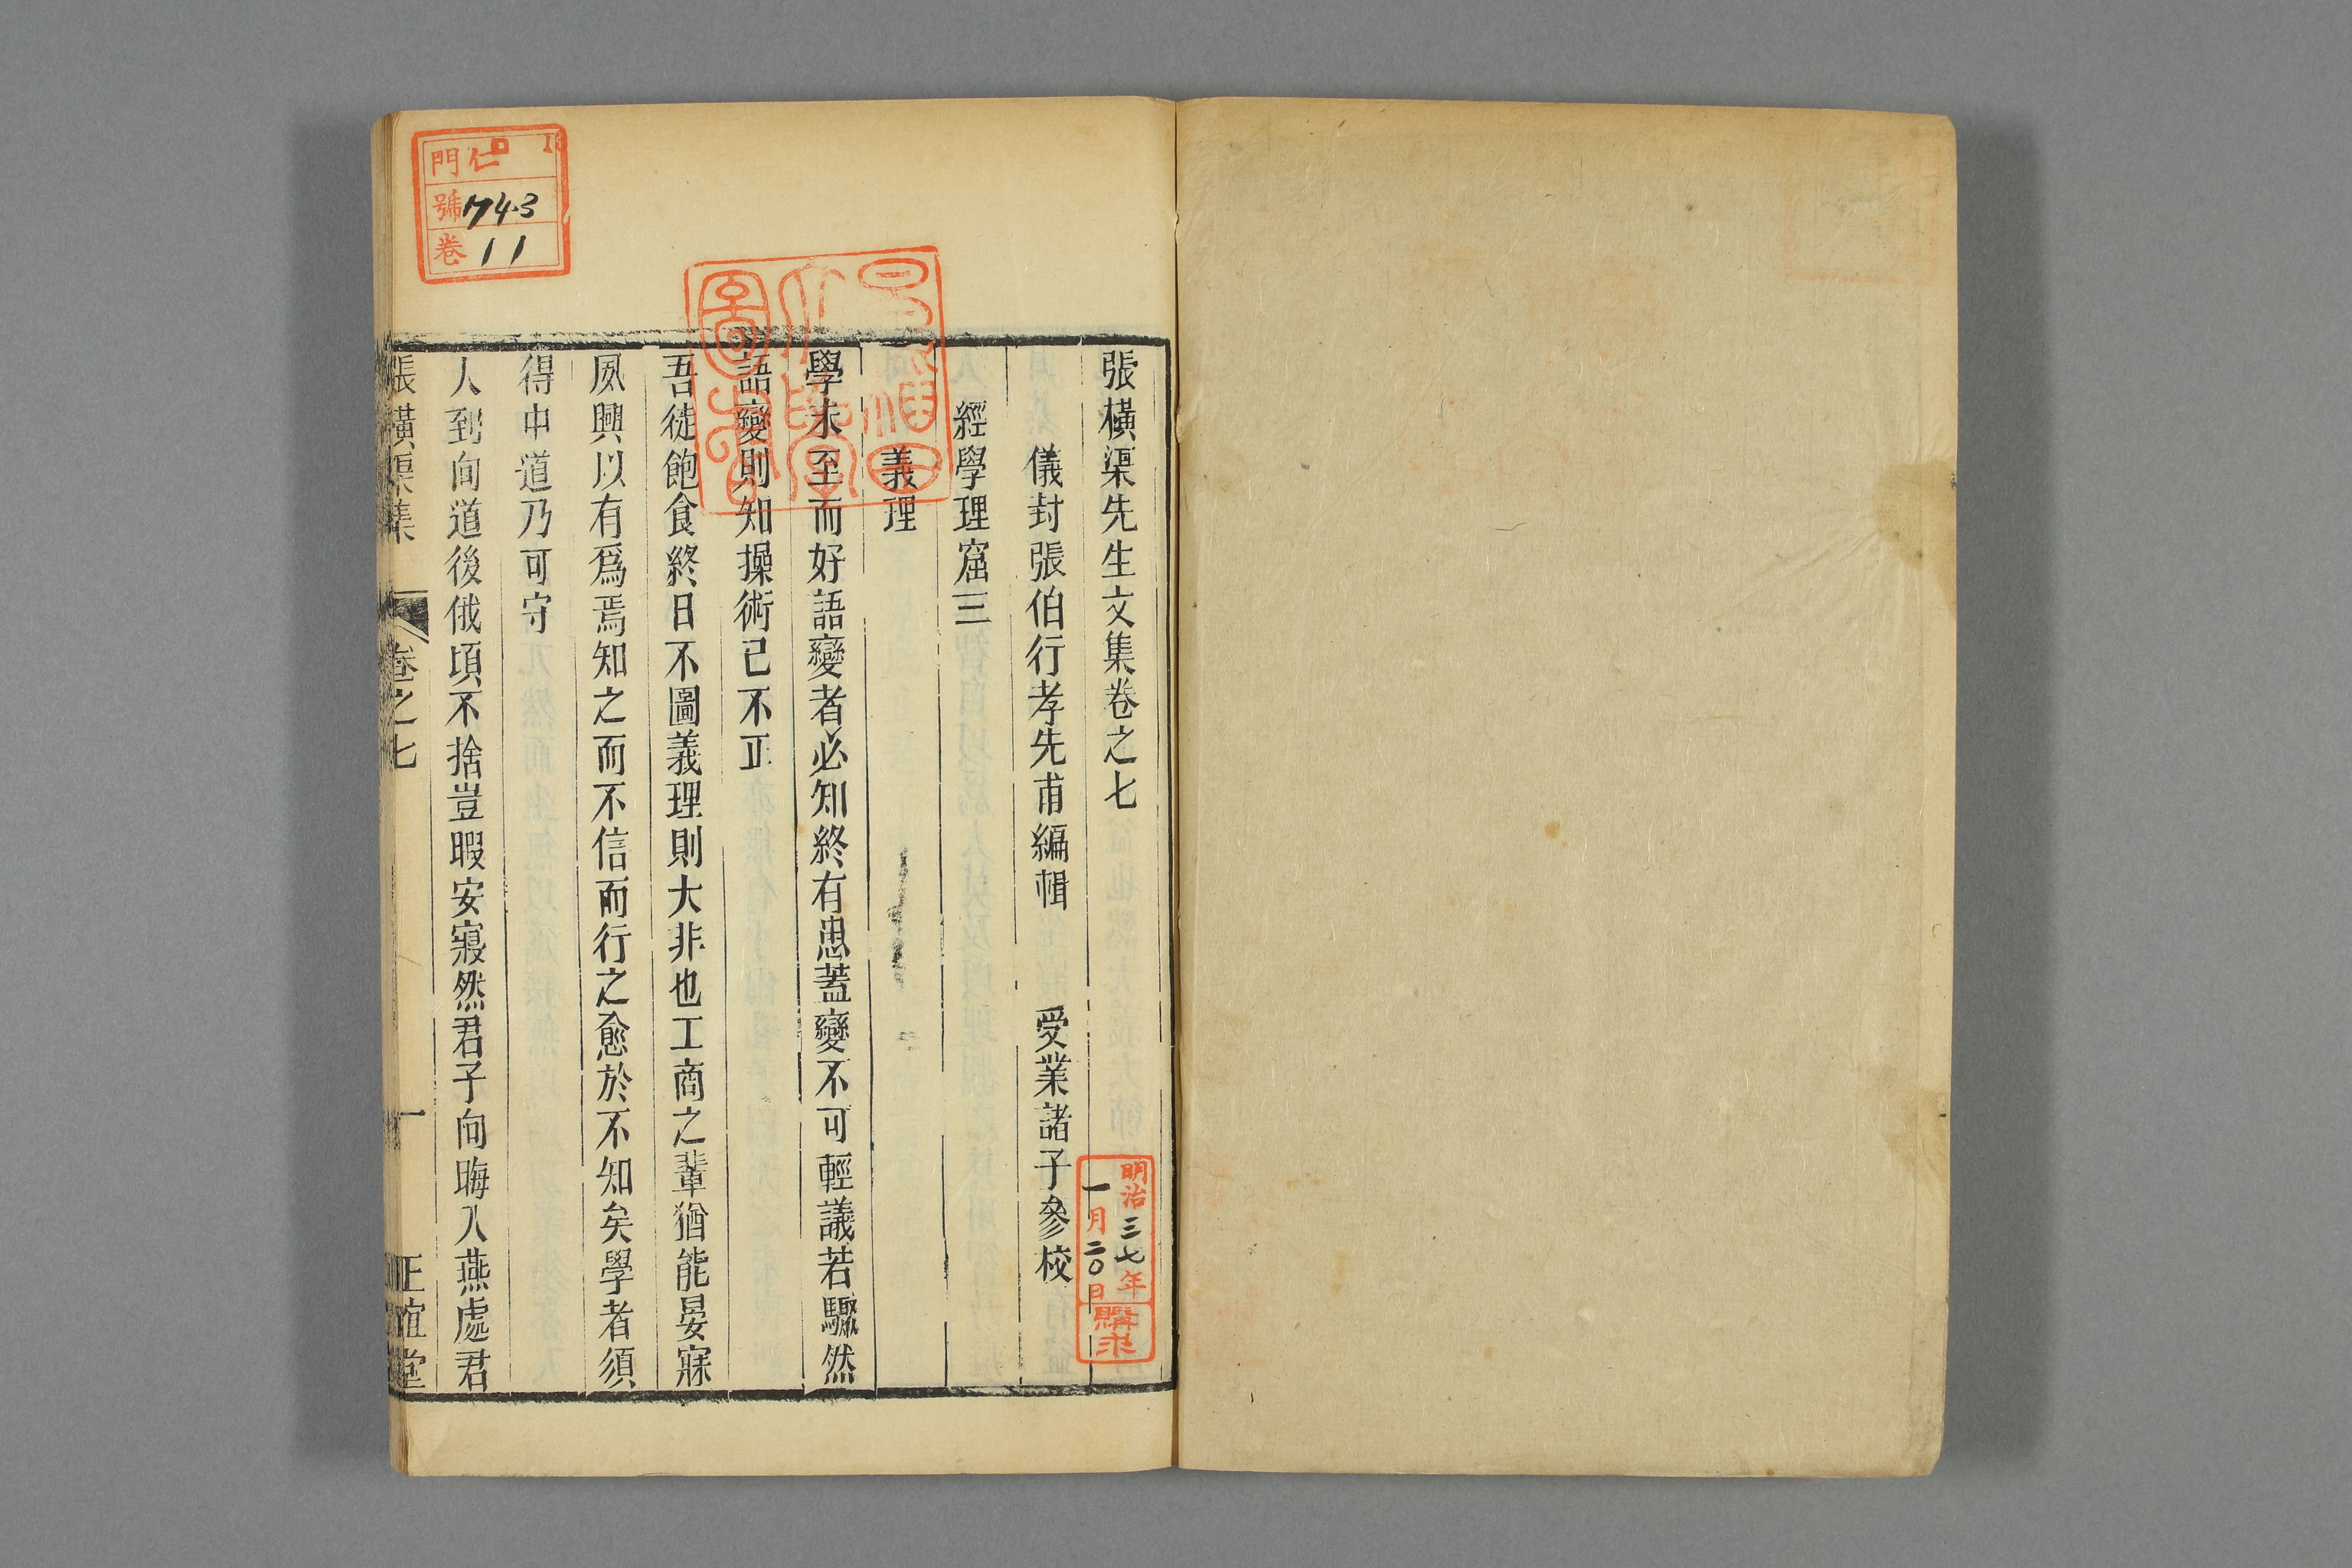 張橫渠先生文集卷之七
儀封張伯行孝先甫編輯 受業諸子參校
經學理窟三
義理
學未至而好語變者必知終有患蓋變不可輕議若驟然
語變則知操術已不正
吾徒飽食終日不圖義理則大非也工商之輩猶能晏寐
夙興以有爲焉知之而不信而行之愈於不知矣學者須
得中道乃可守
人到向道後俄頃不捨豈暇安寢然君子向晦入燕處君
張橫渠集 卷之七 一 正誼堂
門 仁
號 743
卷 11
早稲田
大學
圖書
明治三七年
一月二〇日
購求